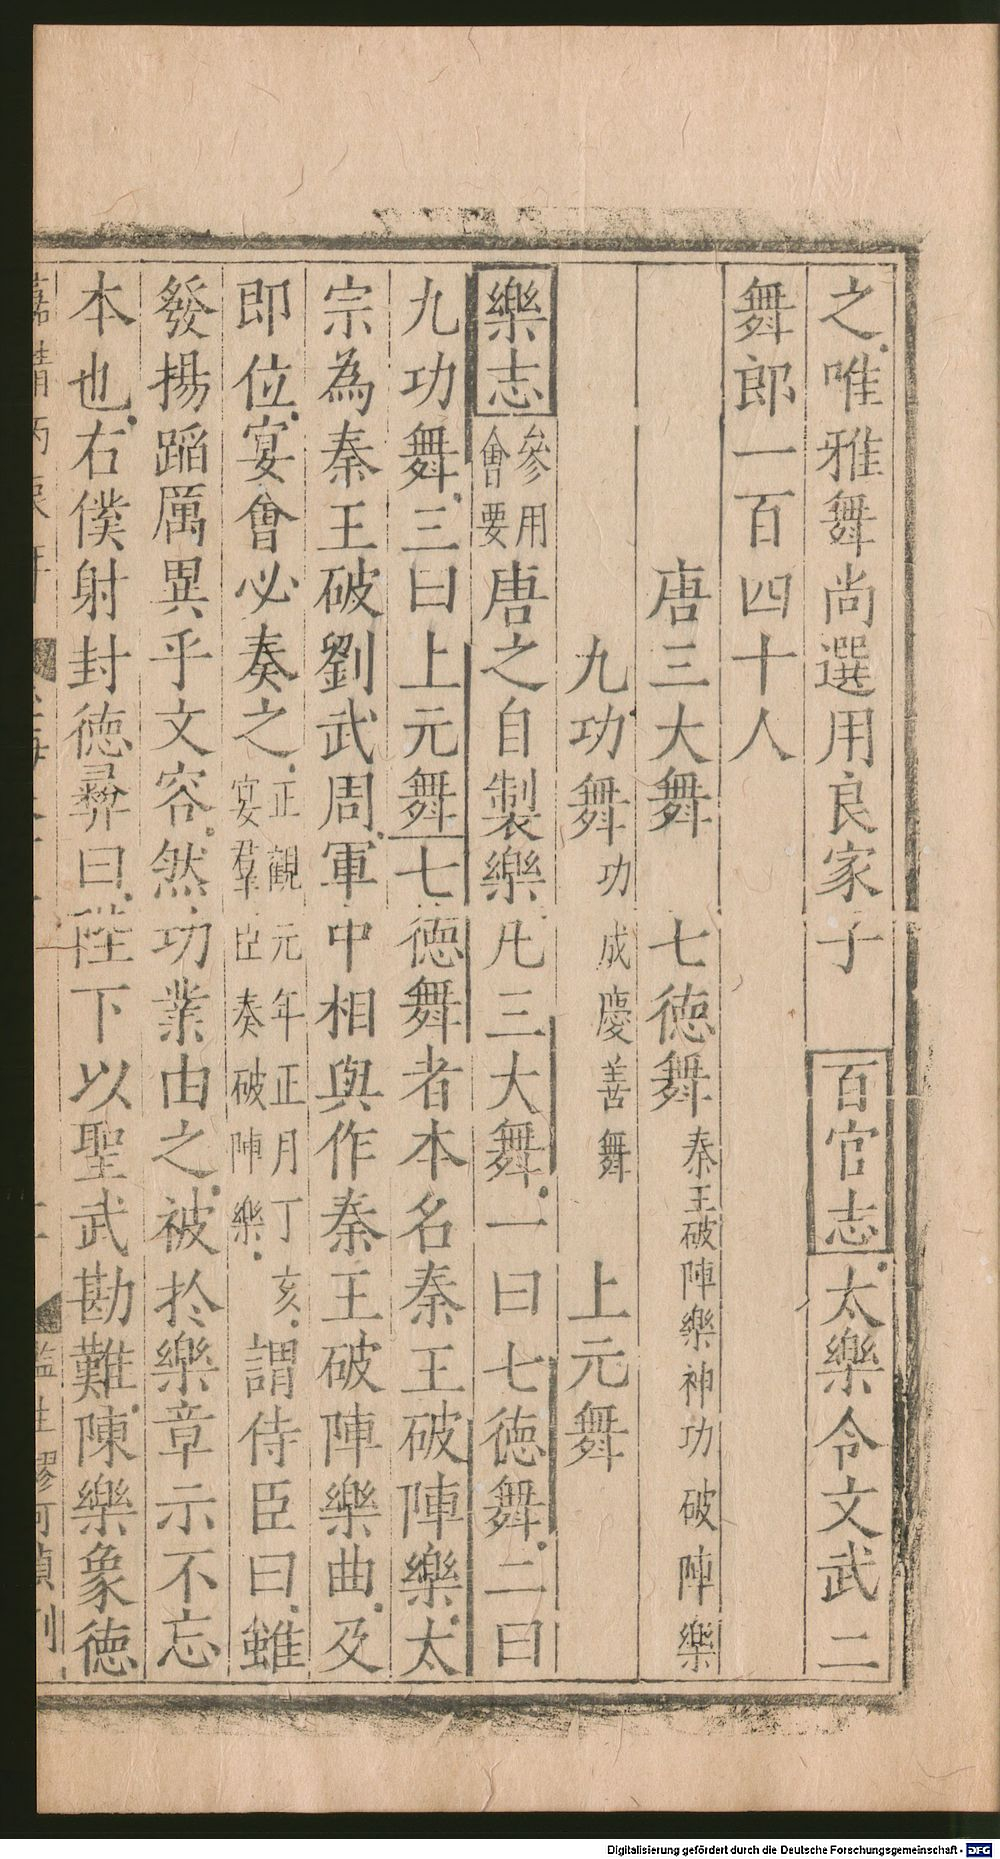 之唯雅舞尚選用良家子 百官志太樂令文武二
舞郎一百四十人
唐三大舞 七德舞 秦王破陣樂神功破陣樂
九功舞 功成慶善舞 上元舞
樂志 參用會要 唐之自製樂凡三大舞一曰七德舞二曰
九功舞三曰上元舞七德舞者本名秦王破陣樂太
宗為秦王破劉武周軍中相與作秦王破陣樂曲及
即位宴會必奏之 正觀元年正月丁亥宴羣臣奏破陣樂 謂侍臣曰雖
發揚蹈厲異乎文容然功業由之被扵樂章示不忘
本也右僕射封德彛曰陛下以聖武勘難陳樂象德
Digitalisierung gefördert durch die Deutsche Forschungsgemeinschaft - DFG